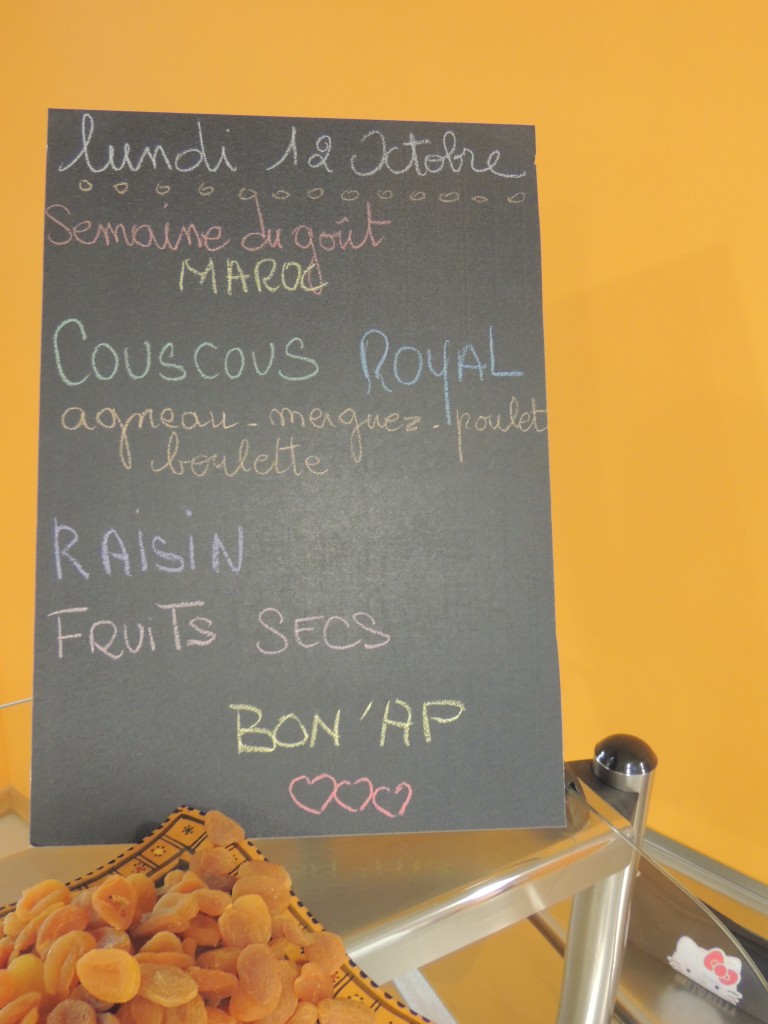 lundi 12 Octobre
Semaine du goût
MAROC
COUSCOUS ROYAL
agneau - merguez - poulet
boulette
RAISIN
FRUITS SECS
BON'AP